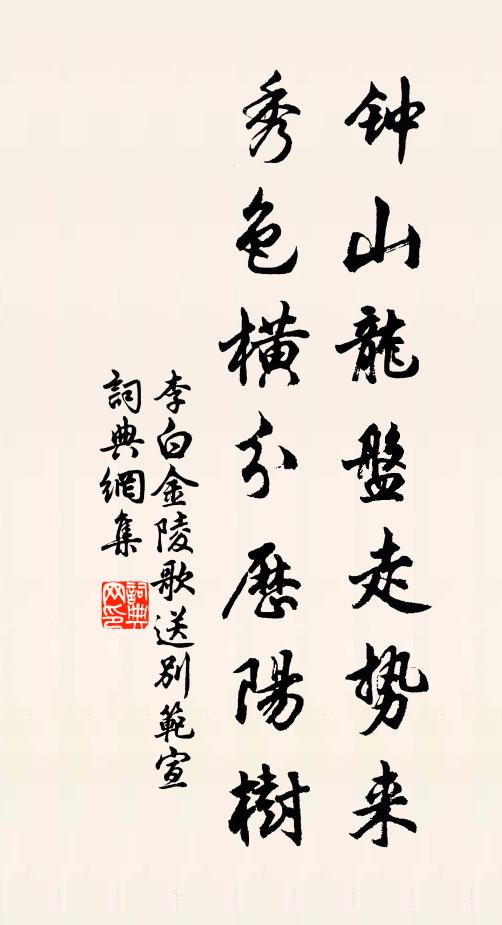 钟山龍盤走势来
秀色橫分歷陽樹
李白金陵歌送別範宣
詞典網集
詞典网印